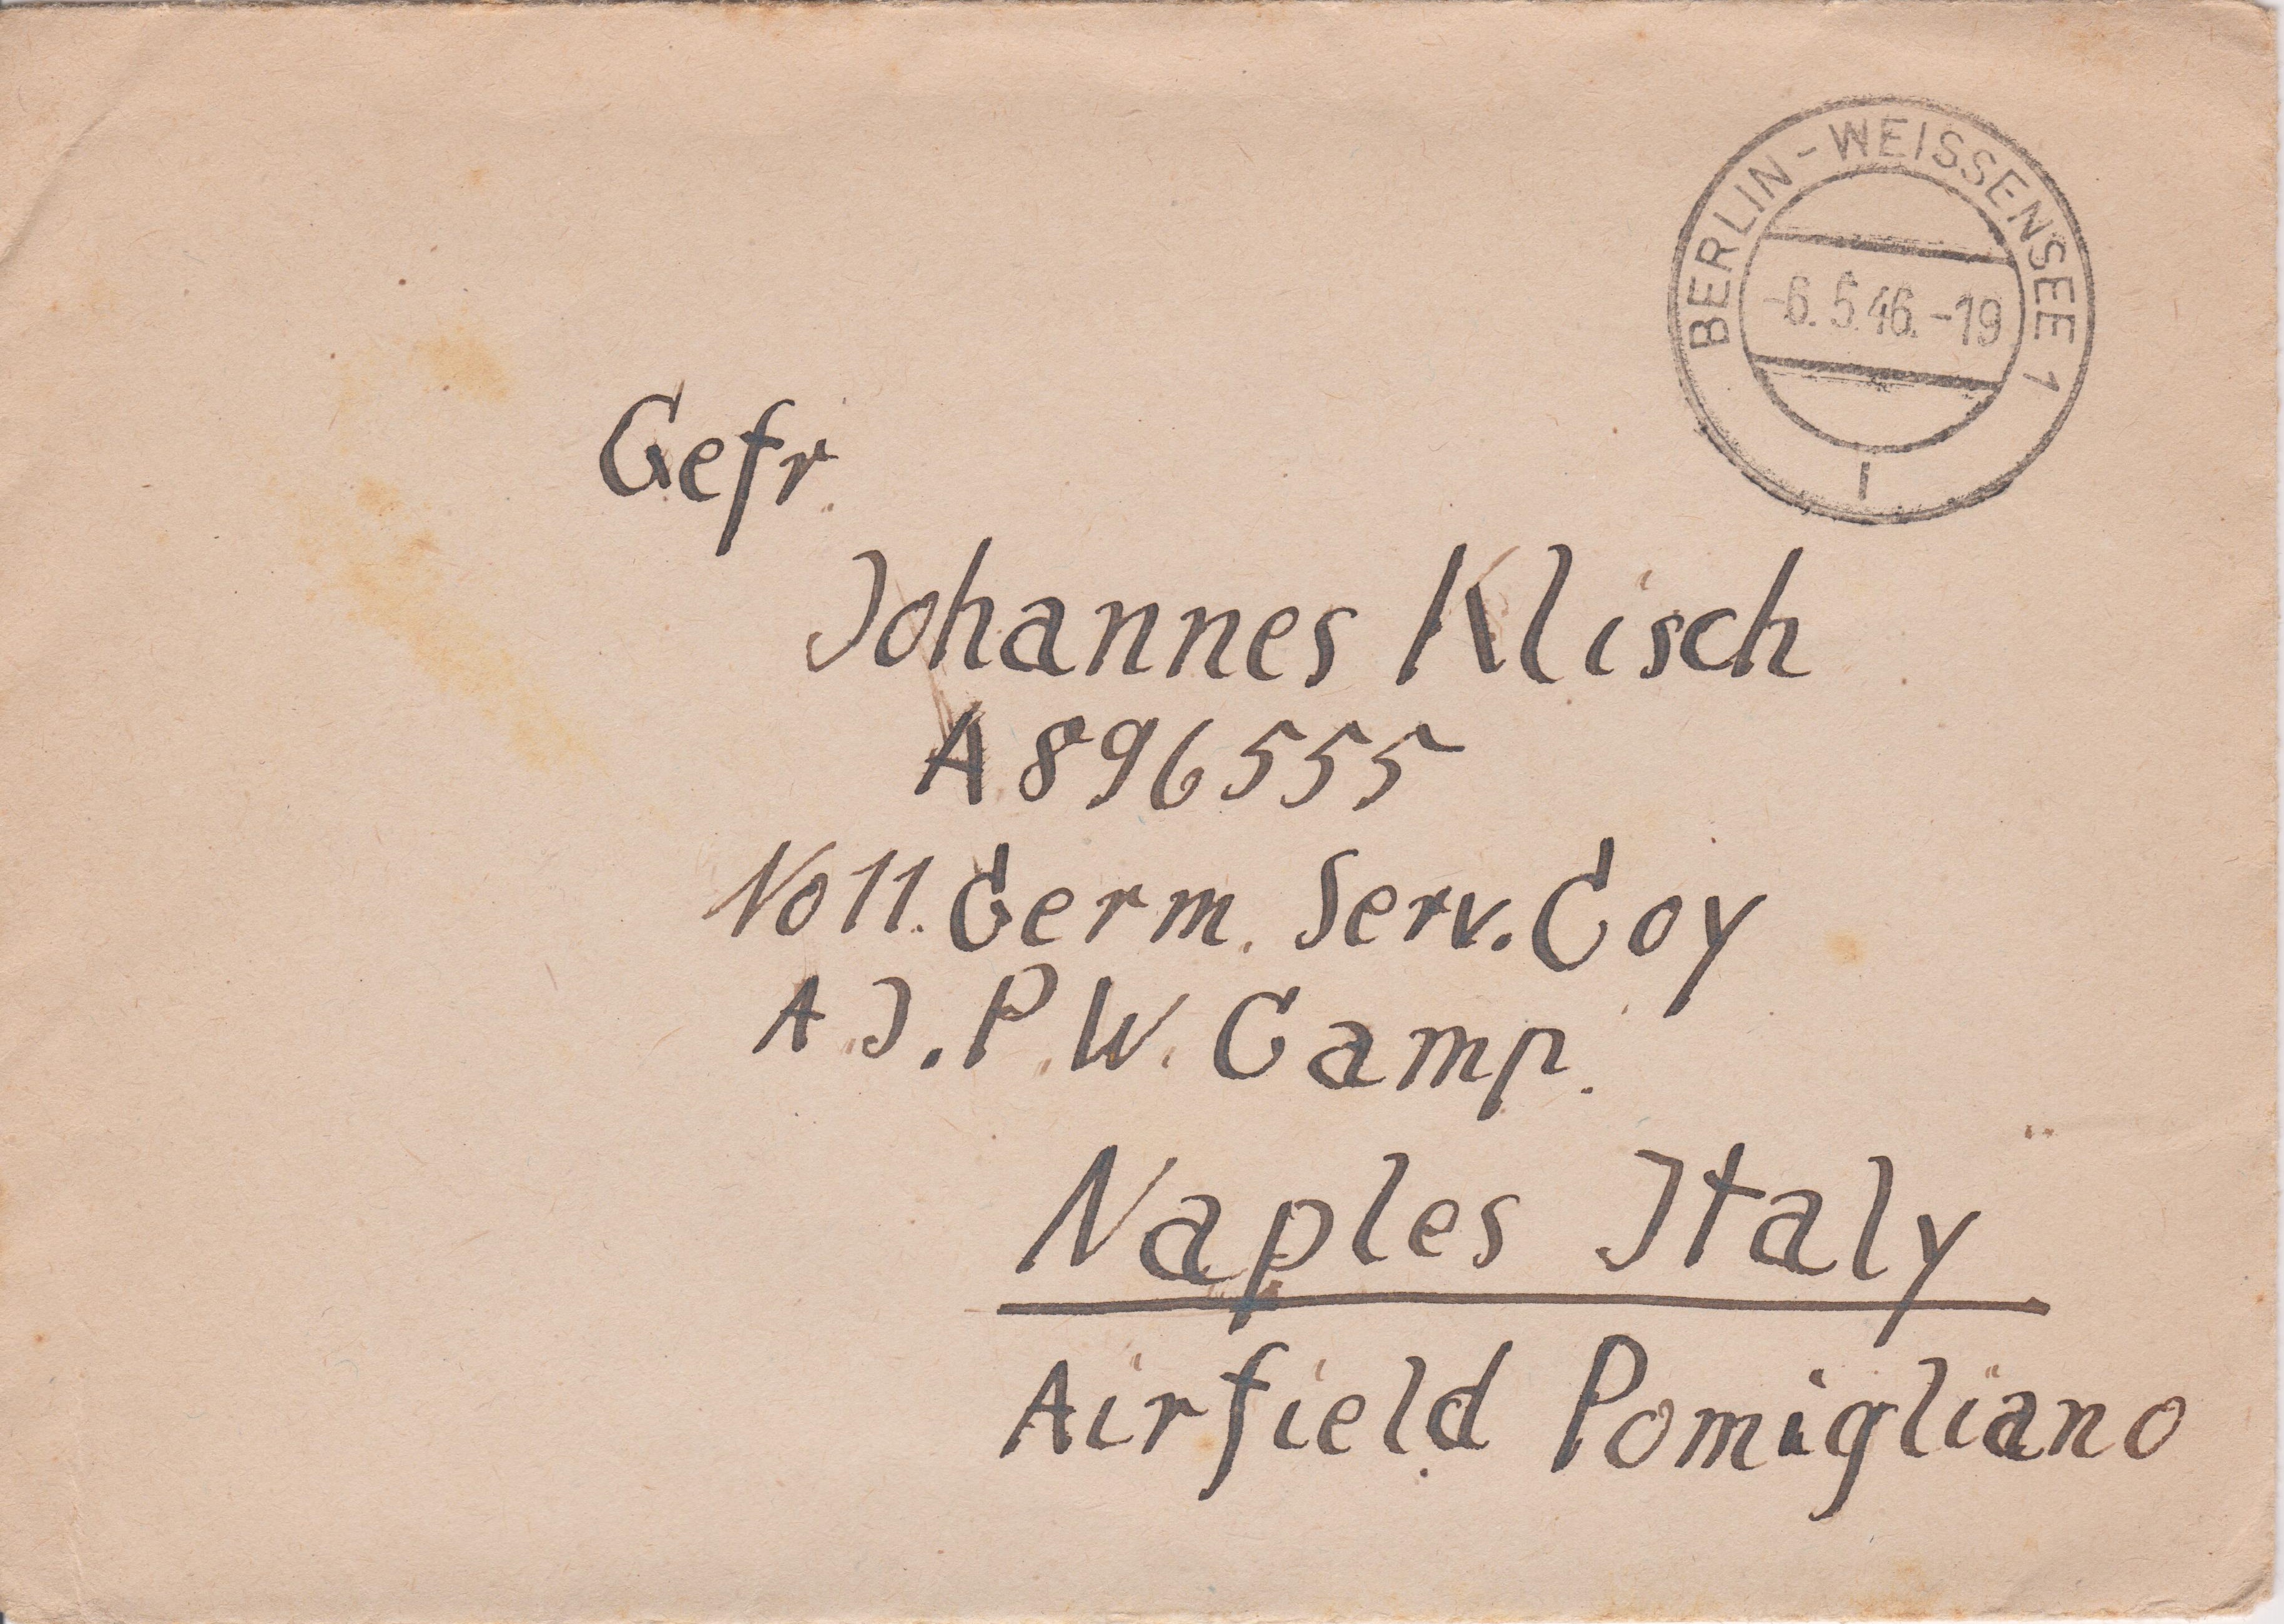 BERLIN-WEISSENSEE 1
-6.5.46.-19
l
Gefr.
Johannes Klisch
A 896555
No 11. Germ. Serv. Coy
A.J.P.W. Camp.
Naples Italy
Airfield Pomigliano